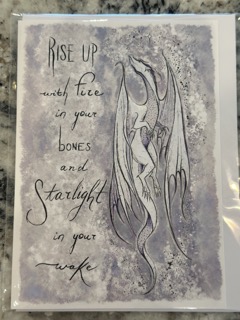 RISE UP
with fire
in your
bones
and
Starlight
in your
wake